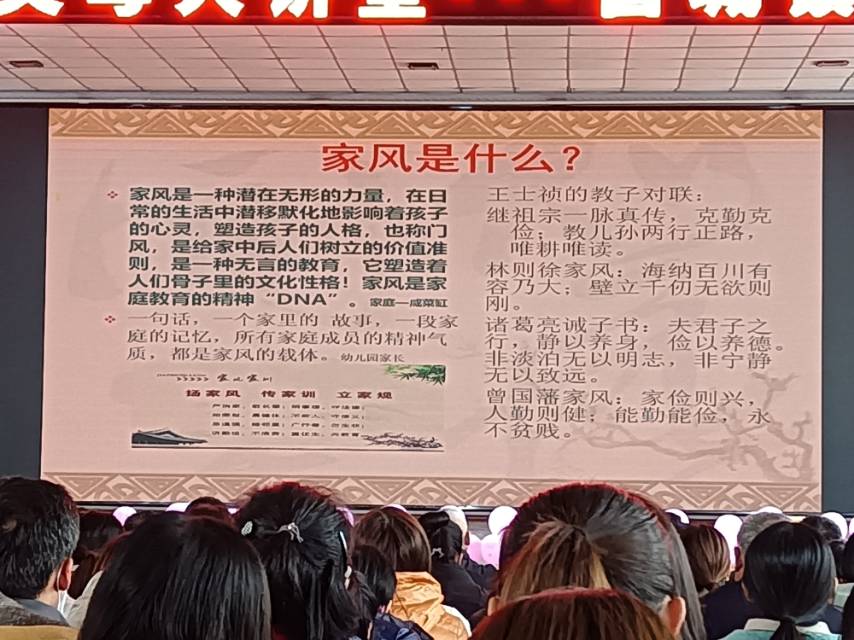 家风是什么？
家风是一种潜在无形的力量，在日
常的生活中潜移默化地影响着孩子
的心灵，塑造孩子的人格，也称门
风，是给家中后人们树立的价值准
则，是一种无言的教育，它塑造着
人们骨子里的文化性格！家风是家
庭教育的精神“DNA”。家庭—咸菜缸
一句话，一个家里的 故事，一段家
庭的记忆，所有家庭成员的精神气
质，都是家风的载体。幼儿园家长
扬家风 传家训 立家规
王士祯的教子对联：
继祖宗一脉真传，克勤克
俭；教儿孙两行正路，
唯耕唯读。
林则徐家风：海纳百川有
容乃大；壁立千仞无欲则
刚。
诸葛亮诫子书：夫君子之
行，静以养身，俭以养德。
非淡泊无以明志，非宁静
无以致远。
曾国藩家风：家俭则兴，
人勤则健；能勤能俭，永
不贫贱。